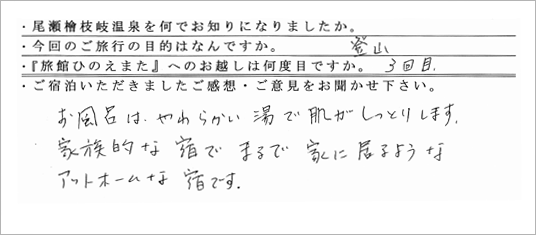 ・尾瀬檜枝岐温泉を何でお知りになりましたか。
・今回のご旅行の目的はなんですか。 登山
・『旅館ひのえまた』へのお越しは何度目ですか。 3回目.
・ご宿泊いただきましたご感想・ご意見をお聞かせ下さい。
お風呂は、やわらかい湯で肌がしっとりします.
家族的な宿でまるで家に居るような
アットホームな宿です.